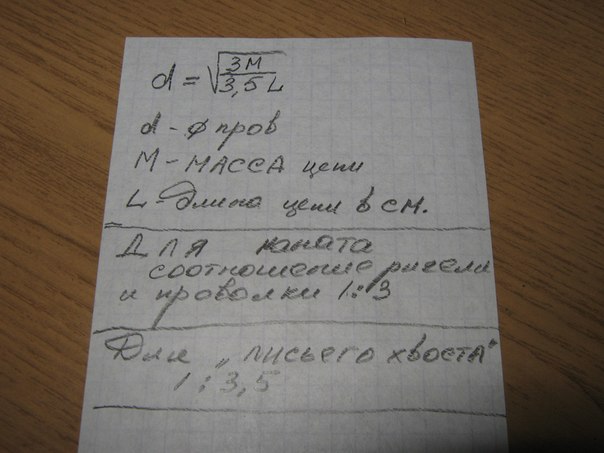 d = √(3М / 3,5 L)
d - ⌀ пров
М - МАССА цепи
L - длина цепи в см.
Для каната
соотношение ригеля
и проволки 1:3
Для „лисьего хвоста"
1:3,5